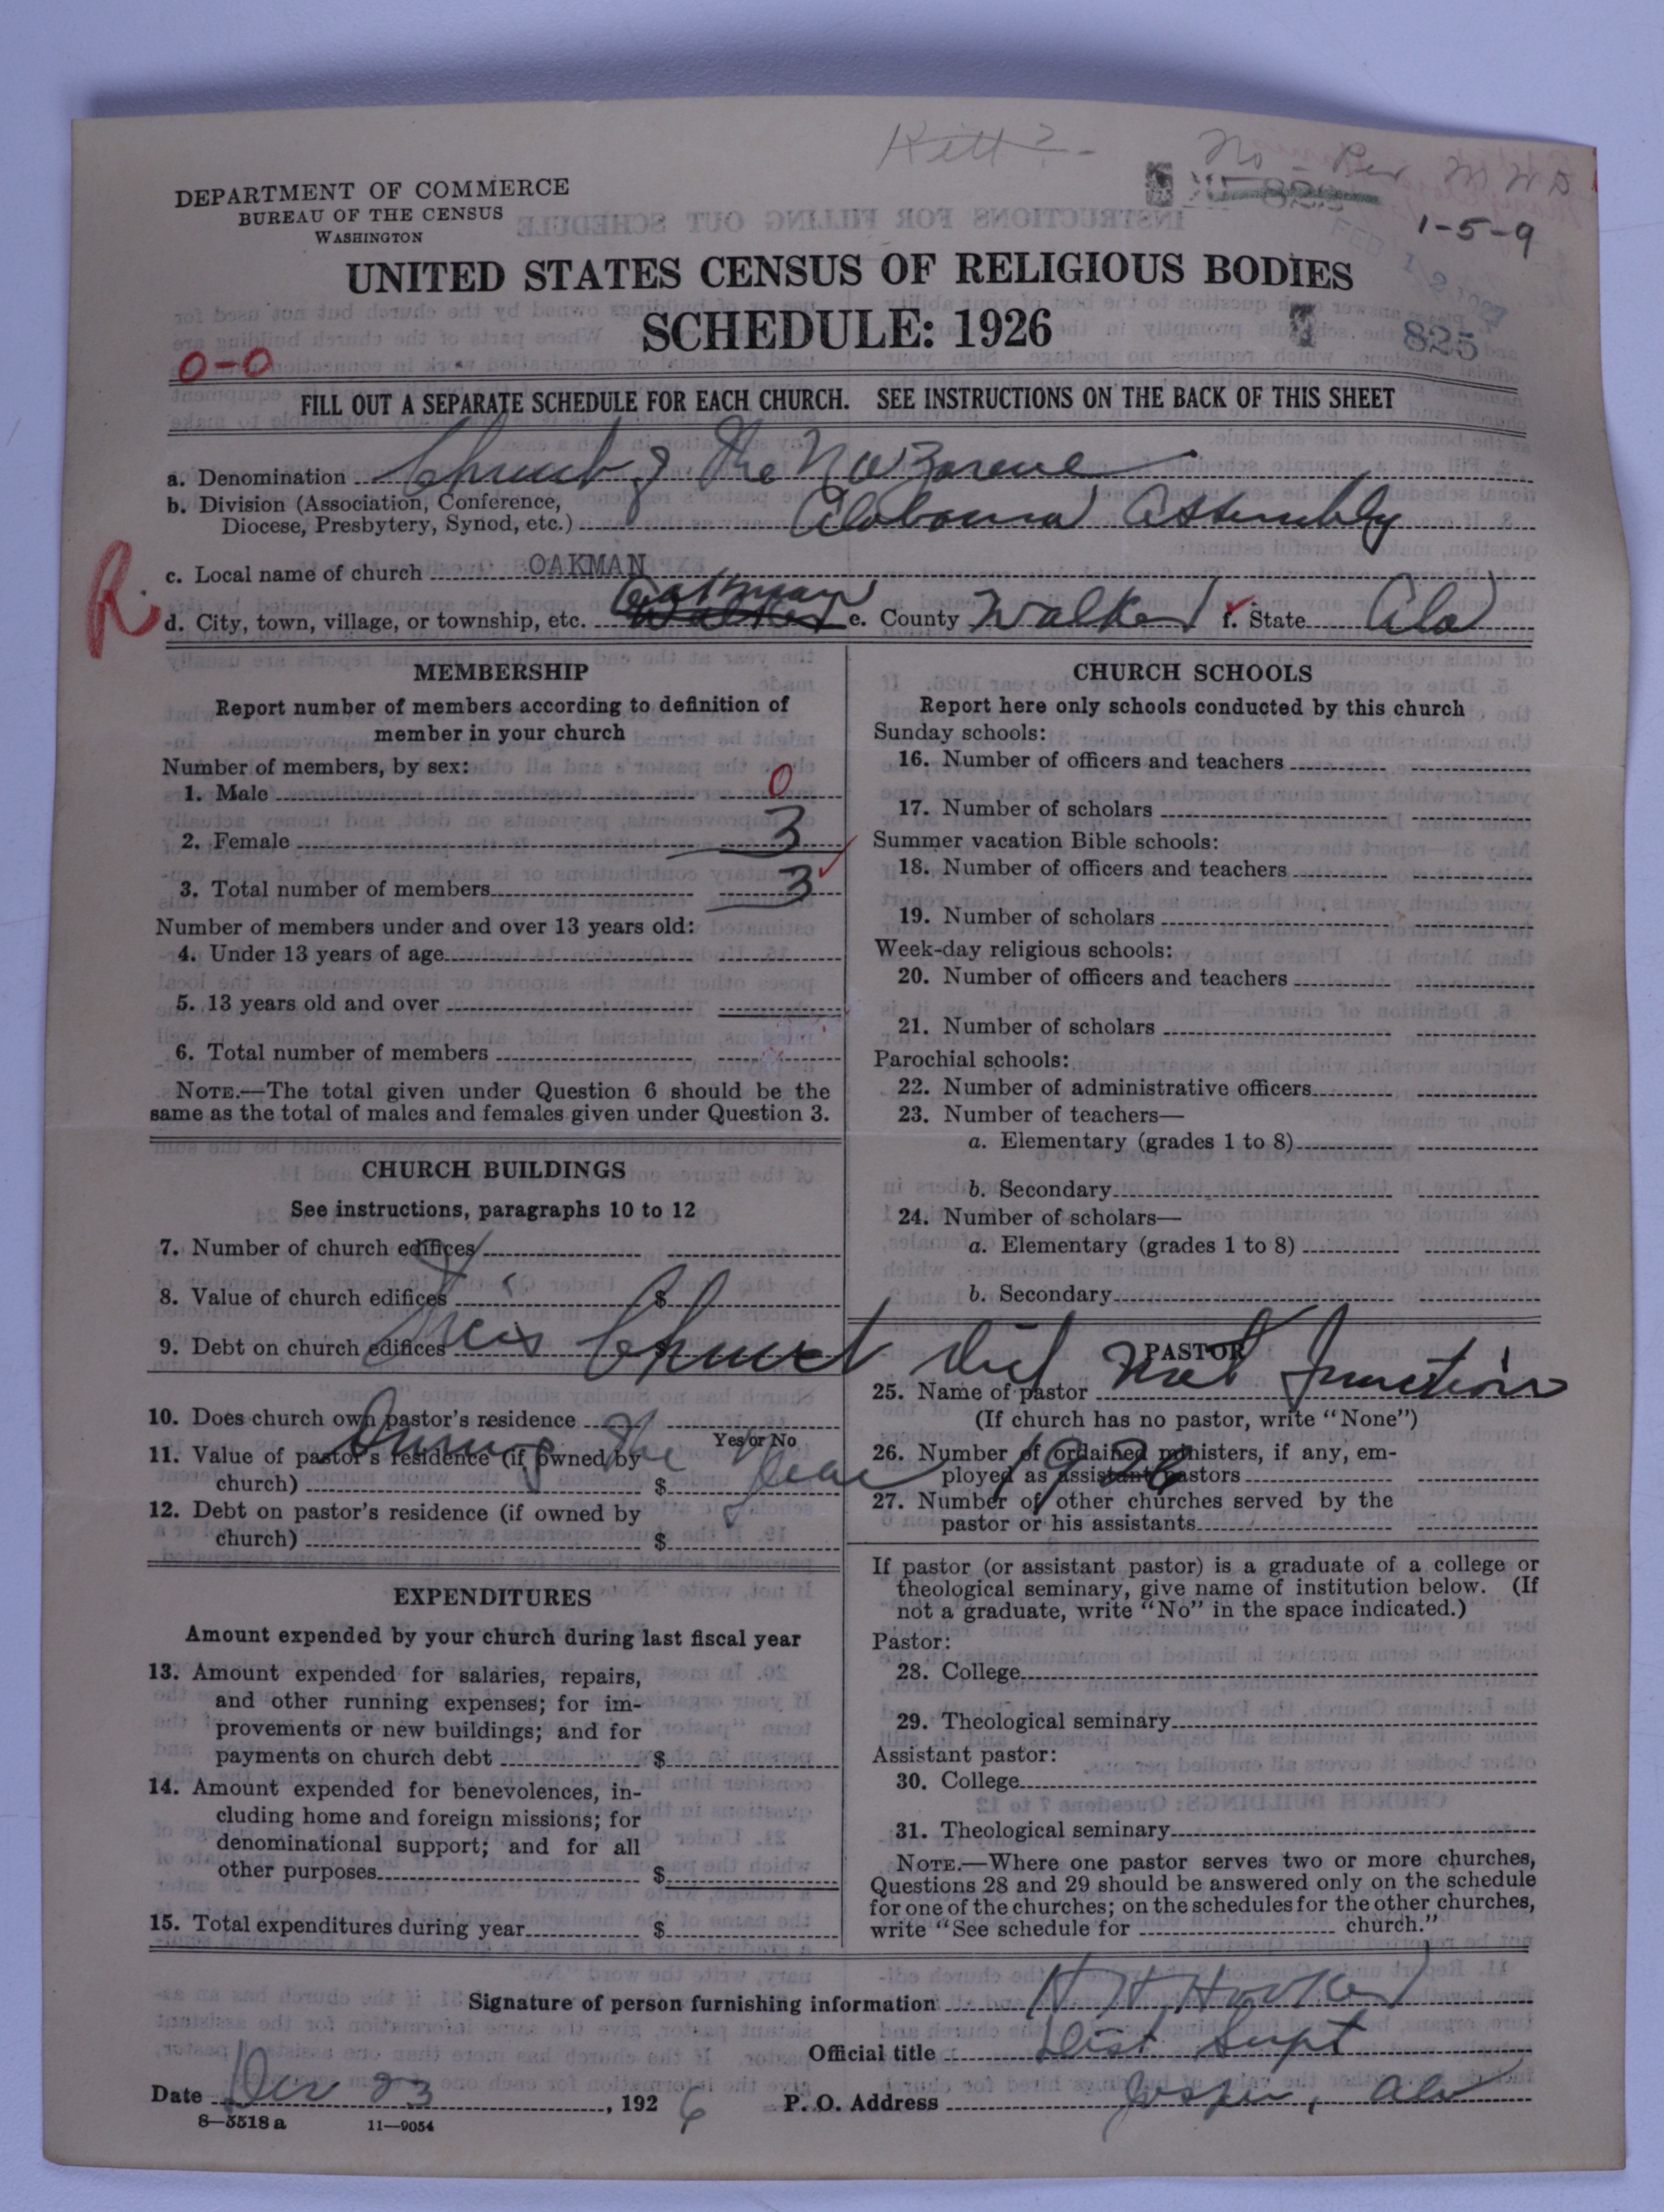 No - Rev W W D
1-5-9
DEPARTMENT OF COMMERCE
BUREAU OF THE CENSUS
WASHINGTON
FEB 12 1927
UNITED STATES CENSUS OF RELIGIOUS BODIES
SCHEDULE: 1926
825
0-0
FILL OUT A SEPARATE SCHEDULE FOR EACH CHURCH. SEE INSTRUCTIONS ON THE BACK OF THIS SHEET
a. Denomination Church of the Nazarene
b. Division (Association, Conference,
Diocese, Presbytery, Synod, etc.) Alabama Assembly
c. Local name of church OAKMAN
R.
d. City, town, village, or township, etc. Walker Oakman e. County Walker f. State Ala
MEMBERSHIP
Report number of members according to definition of
member in your church
Number of members, by sex:
1. Male 0
2. Female 3
3. Total number of members 3
Number of members under and over 13 years old:
4. Under 13 years of age
5. 13 years old and over
6. Total number of members
NOTE.—The total given under Question 6 should be the
same as the total of males and females given under Question 3.
CHURCH BUILDINGS
See instructions, paragraphs 10 to 12
7. Number of church edifices
8. Value of church edifices $
9. Debt on church edifices
This Church did not function
10. Does church own pastor's residence
Yes or No
During the year 1926
11. Value of pastor's residence (if owned by
church) $
12. Debt on pastor's residence (if owned by
church) $
EXPENDITURES
Amount expended by your church during last fiscal year
13. Amount expended for salaries, repairs,
and other running expenses; for im-
provements or new buildings; and for
payments on church debt $
14. Amount expended for benevolences, in-
cluding home and foreign missions; for
denominational support; and for all
other purposes $
15. Total expenditures during year $
CHURCH SCHOOLS
Report here only schools conducted by this church
Sunday schools:
16. Number of officers and teachers
17. Number of scholars
Summer vacation Bible schools:
18. Number of officers and teachers
19. Number of scholars
Week-day religious schools:
20. Number of officers and teachers
21. Number of scholars
Parochial schools:
22. Number of administrative officers
23. Number of teachers—
a. Elementary (grades 1 to 8)
b. Secondary
24. Number of scholars—
a. Elementary (grades 1 to 8)
b. Secondary
PASTOR
25. Name of pastor
(If church has no pastor, write "None")
26. Number of ordained ministers, if any, em-
ployed as assistant pastors
27. Number of other churches served by the
pastor or his assistants
If pastor (or assistant pastor) is a graduate of a college or
theological seminary, give name of institution below. (If
not a graduate, write "No" in the space indicated.)
Pastor:
28. College
29. Theological seminary
Assistant pastor:
30. College
31. Theological seminary
NOTE.—Where one pastor serves two or more churches,
Questions 28 and 29 should be answered only on the schedule
for one of the churches; on the schedules for the other churches,
write "See schedule for church."
Signature of person furnishing information H H Hooker
Official title Dist Supt
Date Dec 23, 1926 P. O. Address Jasper, Ala
8—5518 a 11—9054